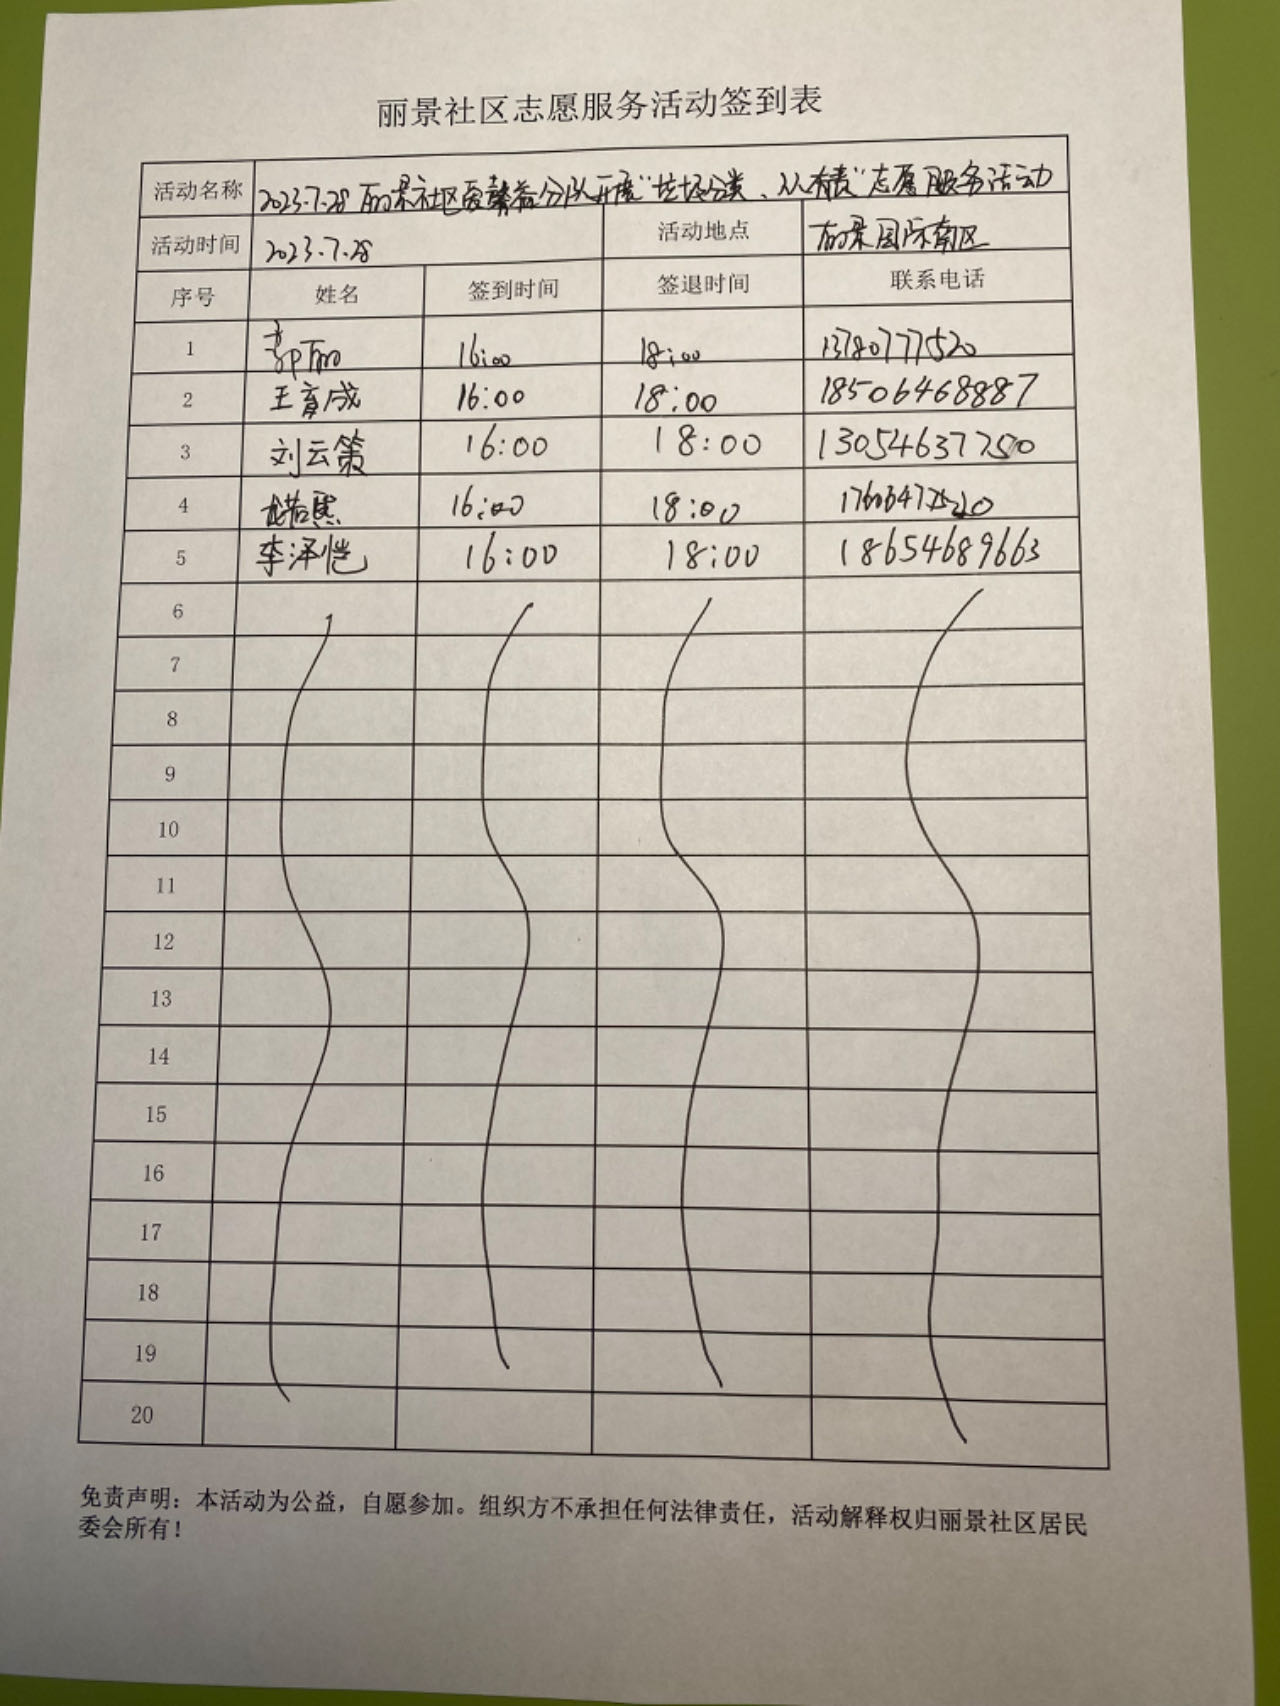 丽景社区志愿服务活动签到表
活动名称 2023.7.28 丽景社区爱馨益分队开展“垃圾分类、人人有责”志愿服务活动
活动时间 2023.7.28 活动地点 丽景国际南区
序号 姓名 签到时间 签退时间 联系电话
1 郭丽 16:00 18:00 13780777520
2 王育成 16:00 18:00 18506468887
3 刘云策 16:00 18:00 13054637250
4 16:00 18:00
5 李泽恺 16:00 18:00 18654689663
6
7
8
9
10
11
12
13
14
15
16
17
18
19
20
免责声明：本活动为公益，自愿参加。组织方不承担任何法律责任，活动解释权归丽景社区居民
委会所有！